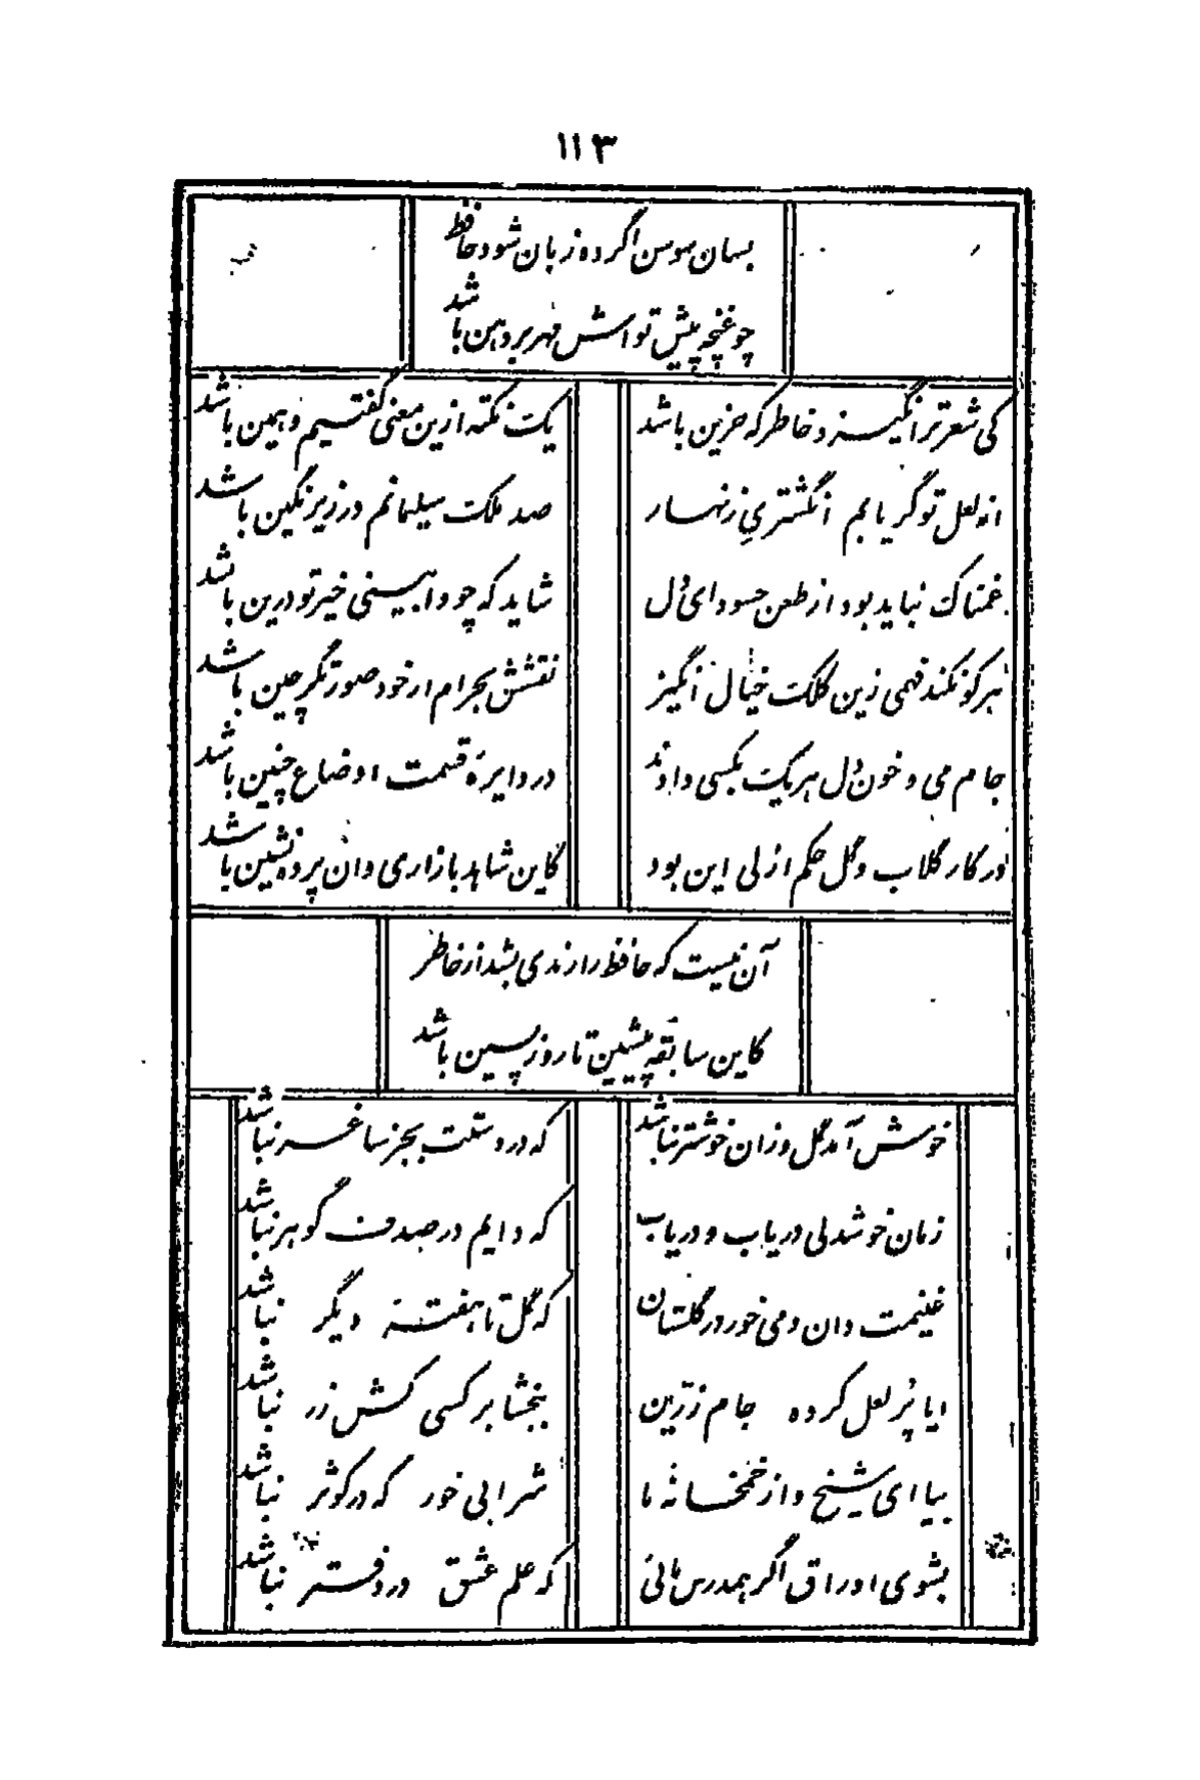 ۱۱۳
بسان سوسن اگر ده زبان شود حافظ
چو غنچه پیش تو اش مهر بر دهن باشد
کی شعر تر انگیزد خاطر که حزین باشد
یک نکته ازین معنی گفتیم و همین باشد
از لعل تو گر یابم انگشتریِ زنهار
صد ملکت سیلمانم در زیر نگین باشد
غمناک نباید بود از طعن حسود ای دل
شاید که چو وا بینی خیر تو درین باشد
هر کو نکند فهمی زین کلک خیال انگیز
نقشش بحرام ار خود صورتگر چین باشد
جام می و خون دل هر یک بکسی دادند
در دایرهٔ قسمت اوضاع چنین باشد
در کار گلاب و گل حکم ازلی این بود
کاین شاهد بازاری وان پرده نشین باشد
آن نیست که حافظ را رندی بشد از خاطر
کاین سابقهٔ پیشین تا روز پسین باشد
خوش آمد گل وزان خوشتر نباشد
که در دستت بجز ساغر نباشد
زمان خوشدلی دریاب و دریاب
که دایم در صدف گوهر نباشد
غنیمت دان و می خور در گلستان
که گل تا هفتهٔ دیگر نباشد
ایا پُر لعل کرده جام زرّین
ببخشا بر کسی کش زر نباشد
بیا ای شیخ و از خمخانهٔ ما
شرابی خور که در کوثر نباشد
بشوی اوراق اگر همدرس مائی
که علم عشق در دفتر نباشد